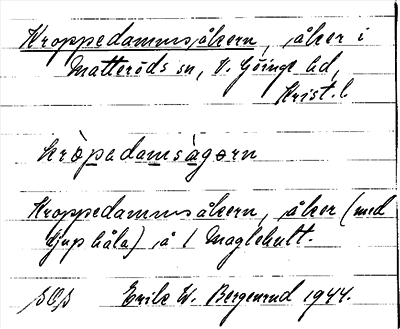 Kroppedammsåkern, åker i
Matteröds sn, V. Göinge hd,
Krist. l.
kròpadamsàgɵrn
Kroppedammsåkern, åker (med
djup håla) å 1 Maglehult.
Erik W. Bergenrud 1944.